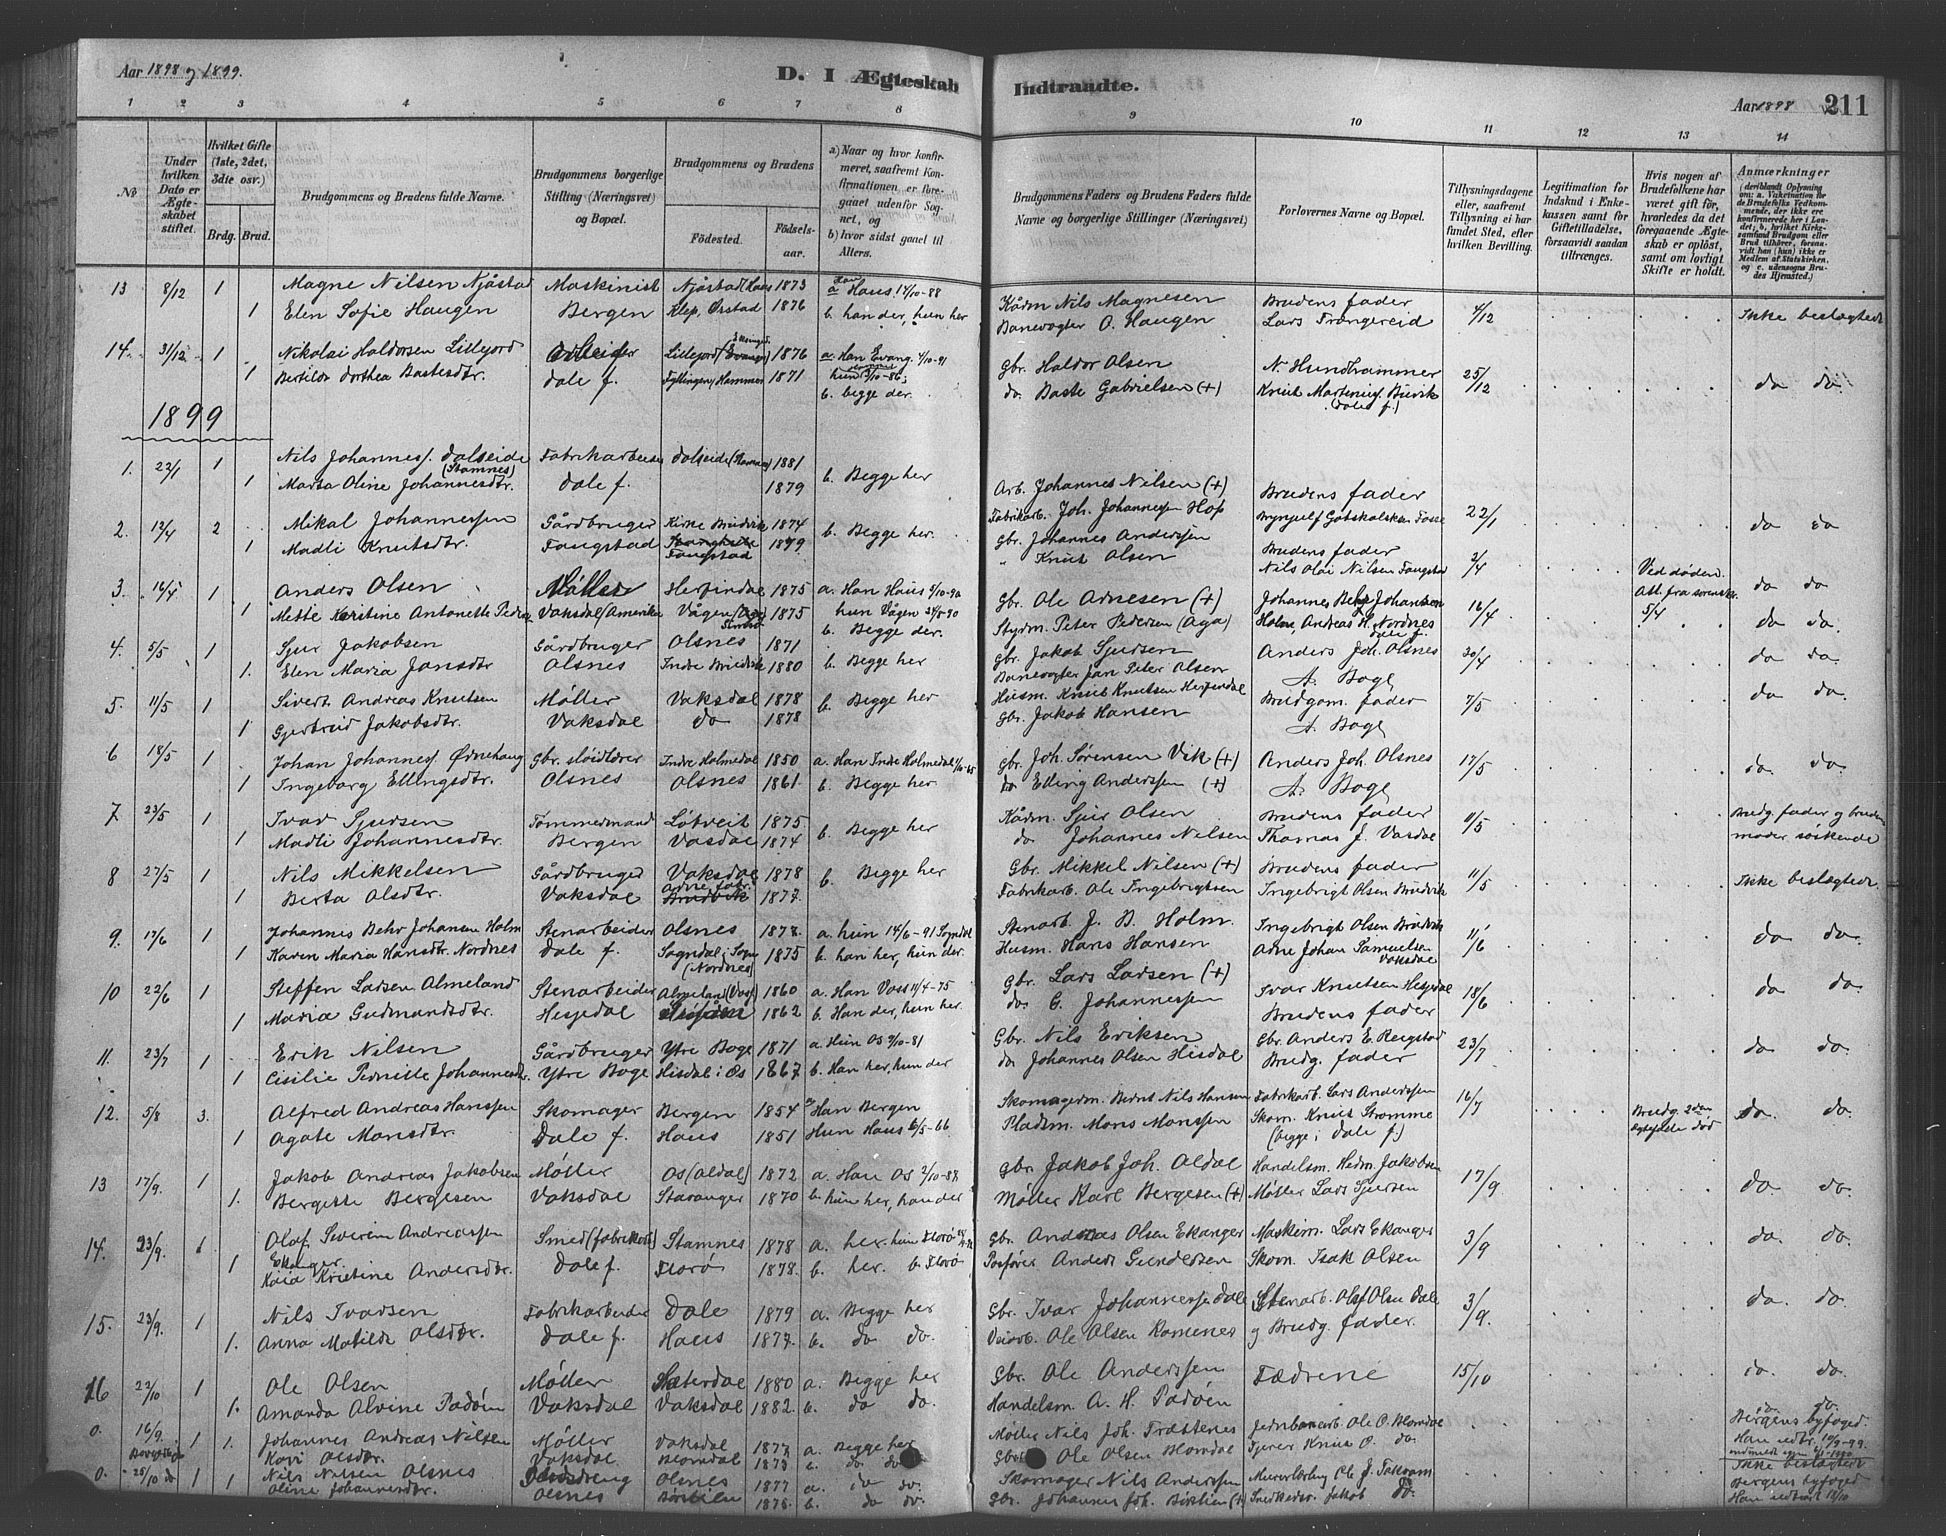 Aar 1898 og 1899.
D. I Ægteskab
Indtraadte.
Aar 1898
211
1 2 3 4 5 6 7 8 9 10 11 12 13 14
No
Under hvilken Dato er Ægteskabet stiftet.
Hvilket Gifte (1ste, 2det, 3die osv.)
Brdg. Brud.
Brudgommens og Brudens fulde Navne.
Brudgommens borgerlige Stilling (Næringsvei) og Bopæl.
Brudgommens og Brudens
Fødested.
Fødselsaar.
a) Naar og hvor konfirmeret, saafremt Konfirmationen er foregaaet udenfor Sognet, og
b) hvor sidst gaaet til Alters.
Brudgommens Faders og Brudens Faders fulde Navne og borgerlige Stillinger (Næringsvei)
Forlovernes Navne og Bopæl.
Tillysningsdagene eller, saafremt Tillysning ei har fundet Sted, efter hvilken Bevilling.
Legitimation for Indskud i Enkekassen samt for Giftetilladelse, forsaavidt saadan tiltrænges.
Hvis nogen af Brudefolkene har været gift før, hvorledes da det foregaaende Ægteskab er opløst, samt om lovligt Skifte er holdt.
Anmærkninger
(deriblandt Oplysning om: a. Vakcination for de Brudefolks Vedkommende, der ikke ere konfirmerede her i Landet; b. hvilket Kirkesamfund Brudgom eller Brud tilhører, forsaavidt han (hun) ikke er Medlem af Statskirken, og c. udensogns Brudes Hjemsted.)
13 8/12 1 Magne Nilsen Njåstad Maskinist Njåstad (Haus 1873 a Haus 14/10-88 Kårm Nils Magnesen Brudens fader 4/12 Ikke beslægtede
1 Elen Sofie Haugen Bergen Klep, Ørstad 1876 b. han der, hun her Banevogter O. Haugen Lars Trængereid
14. 31/12 1 Nikolai Haldorsen Lillejord Arbeider Lillejord (Evanger) 1876 a. Han Evang. 4/10-91 Gbr. Haldor Olsen N. Hundhammer 25/12 do do
1 Bertilde Dorthea Bastesdtr. Dale f. Fyllingen, Hammer 1871 hun 3/10-86; b. begge der. do. Baste Gabrielsen (+) Knut Martinius Brivik (Dale f.)
1899
1. 22/1 1 Nils Johanness. Dalseide (Stamnes) Fabrikarbeider Dalseide (Hammer) 1881 b. Begge her Arb. Johannes Nilsen (+) Brudens fader 22/1 do do
1 Marta Oline Johannesdtr. Dale f. 1879 Fabrikarb. Joh. Johannessen Hop Brynjulf Gotskalksen Fosse
2. 12/4 2 Mikal Johannessen Gårdbruger Kirke Bruvik 1874 b. Begge her. Gbr. Johannes Anderssen Brudens fader 2/4 Ved døden. Att. fra sorensk. 5/4 do do
1 Madli Knutsdtr. Fangstad Fangstad 1879 " Knut Olsen Nils Olai Nilsen Fangstad
3. 16/4 1 Anders Olsen Møller Herfindal 1875 a. Han Haus 5/10-90 Gbr. Ole Arnesen (+) Johannes Behr Johansen 16/4 do do.
1 Mette Kerstine Antonette Peders Vaksdal (Amerika Vågen (Aga 1875 hun Vågen 31/8-90 b. Begge der. Styrm. Peter Pedersen (Aga) Holm, Andreas H. Nordnes Dale f.
4. 5/5 1 Sjur Jakobsen Gårdbruger Olsnes 1871 b. Begge her Gbr. Jakob Sjursen Anders Joh. Olsnes 30/4 do do.
1. Elen Maria Jansdtr Olsnes Indre Bruvik 1880 Banevogter Jan Peter Olsen A. Boge
5. 11/5 1 Sivert Andreas Knutsen Møller Vaksdal 1878 b. Begge her Husm. Knut Knutsen Herfindal Brudgom. fader 7/5 do do.
1 Gjertrud Jakobsdtr. Vaksdal do 1878 Gbr. Jakob Hansen A. Boge
6 18/5 1 Johan Johanness. Ødnehaug Gbr. sløidlærer Indre Holmedal 1850 a. Han Indre Holmedal 1/10-65 Gbr. Joh. Sørensen Vik (+) Anders Joh. Olsnes 17/5 do. do.
1 Ingeborg Ellingsdtr. Olsnes Olsnes 1861. b. Begge her do Elling Anderssen (+) A. Boge
7 23/5 1 Ivar Sjursen Tømmermand Løtveit 1875 b. Begge her Kårm. Sjur Olsen Brudens fader 11/5 Brudg. fader og brudens
1 Madli Johannesdtr. Bergen Vasdal 1874 do Johannes Nilsen Thomas J. Vasdal moder søskende
8 27/5 1 Nils Mikkelsen Gårdbruger Vaksdal 1878 b. Begge her Gbr. Mikkel Nilsen (+) Brudens fader 11/5 Ikke beslægtede.
1 Berta Olsdtr. Vaksdal 1877. Fabrikarb. Ole Ingebrigtsen Ingebrigt Olsen Bruvik
9. 17/6 1 Johannes Behr Johansen Holm Stenarbeider Olsnes 1877. a. hun 14/6-91 Sogndal Stenarb. J. B. Holm. Ingebrigt Olsen Bruvik 11/6 do do.
1 Karen Maria Hansdtr. Nordnes Dale f. Sogndal i Sogn (Nordnes) 1875 b. han her, hun der. Husm. Hans Hansen Arne Johan Samuelsen Vaksdal
10 22/6 1 Steffen Larsen Almeland Stenarbeider Almeland (Voss) 1860 a. Han Voss 11/4-75 Gbr. Lars Larsen (+) Ivar Knutsen Hesjedal 18/6 do do.
1 Maria Gudmundsdtr. Hesjedal 1862 b. Han der, hun her. do. G. Johannessen Brudens fader
11. 23/7 1 Erik Nilsen Gårdbruger Ytre Boge 1871 a. Hun Os 9/10-81 Gbr. Nils Eriksen Gbr. Anders E. Reigstad 23/7 do do.
1 Cisilie Pernille Johannesdtr. Ytre Boge Hisdal i Os 1867 b. Han her, hun der do Johannes Olsen Hisdal Brudg. fader
12. 5/8 3. Alfred Andreas Hanssen Skomager Bergen 1854 a Han Bergen Skomagerm. Bernt Nils Hansen Fabrikarb. Lars Anderssen 16/7 Brudg. 2den ægtefælle død do. do.
1 Agate Monsdtr. Dale f. Haus 1851 Hun Haus 6/5-66 Pladsm. Mons Monssen Skom. Knut Strømme (begge i Dale f.)
13 17/9. 1 Jakob Andreas Jakobsen Møller Os (Aldal) 1872 a. Han Os 2/10-87 Gbr. Jakob Joh. Aldal Handelsm. Hedm. Jakobsen 17/9 do. do.
1. Bergitte Bergesen Vaksdal Stavanger 1870 b. hun her, han der Møller Karl Bergesen (+) Møller Lars Sjursen
14. 23/9. 1 Olaf Severin Andreassen Ekanger. Smed (fabrikarb) Stamnes 1878 a. her. hun Florø Gbr. Andreas Olsen Ekanger Maskinm. Lars Ekanger 3/9 do. do.
1 Kaia Kristine Andersdtr. Dale f. Florø 1878. b. her. b. Florø Postfører Anders Gundersen Skom. Isak Olsen
15. 23/9. 1 Nils Ivarsen Fabrikarbeider Dale 1879 a. Begge her Gbr. Ivar Johannesse Dale Stenarb. Olaf Olsen Dale 3/9. do. do.
1. Anna Matilde Olsdtr. Dale f. Haus 1877. b. do do. Veiarb. Ole Olsen Ramenes og Brudg. fader.
16 22/10 1 Ole Olsen Møller Sæterdal 1880 a. Begge her Gbr. Ole Anderssen Fædrene 15/10 do. do.
1. Amanda Alvine Padøen Vaksdal Vaksdal 1882. b. do do. Handelsm. A. H. Padøen
0. 16/9. 1 1. Johannes Andreas Nilsen Møller Vaksdal 1877 a. Begge her Møller Nils Joh. Trættenes Jernbanearb. Ole O. Blomdal Bergens byfoged
Borgerlige Kari Olsdtr. Vaksdal. Blomdal 1873 b. do do. Gbr. Ole Olsen Blomdal Fyrer Knut O. do. Han udtr. 10/9-99.
0. 25/10 do 1 1 Nils Nilsen Olsnes Gårdsdreng Olsnes 1877 a. do do. Skomager Nils Anderssen Murerlærling Ole J. Takvam Ikke beslægtede Bergens byfoged
Oline Johannesdtr. Olsnes Børtlien 1878. b. do do. Gbr. Johannes Joh. Børtlien (+) Snedkersv. Jakob do. Han udtraadt 18/10